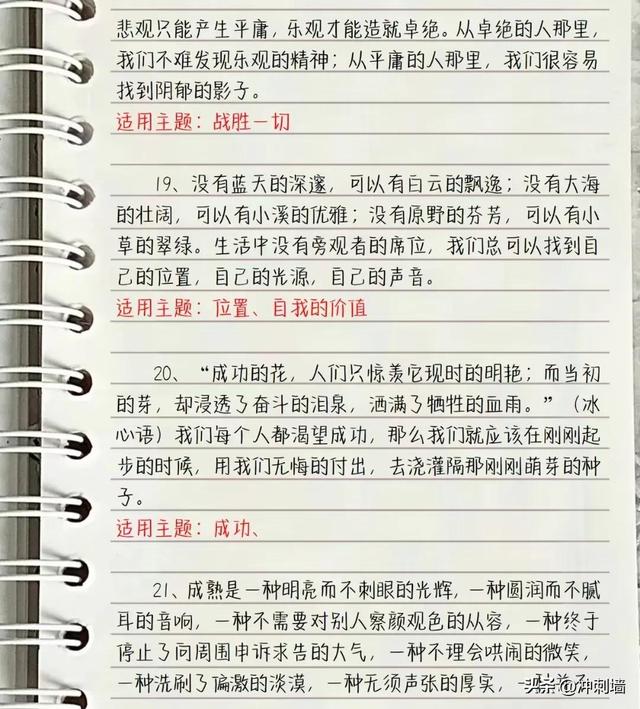 悲观只能产生平庸，乐观才能造就卓绝。从卓绝的人那里，
我们不难发现乐观的精神；从平庸的人那里，我们很容易
找到阴郁的影子。
适用主题：战胜一切
19、没有蓝天的深邃，可以有白云的飘逸；没有大海
的壮阔，可以有小溪的优雅；没有原野的芬芳，可以有小
草的翠绿。生活中没有旁观者的席位，我们总可以找到自
己的位置，自己的光源，自己的声音。
适用主题：位置、自我的价值
20、“成功的花，人们只惊羡它现时的明艳；而当初
的芽，却浸透了奋斗的泪泉，洒满了牺牲的血雨。”（冰
心语）我们每个人都渴望成功，那么我们就应该在刚刚起
步的时候，用我们无悔的付出，去浇灌隔那刚刚萌芽的种
子。
适用主题：成功、
21、成熟是一种明亮而不刺眼的光辉，一种圆润而不腻
耳的音响，一种不需要对别人察颜观色的从容，一种终于
停止了问周围申诉求告的大气，一种不理会哄闹的微笑，
一种洗刷了偏激的淡漠，一种无须声张的厚实，一
头条 @冲刺墙